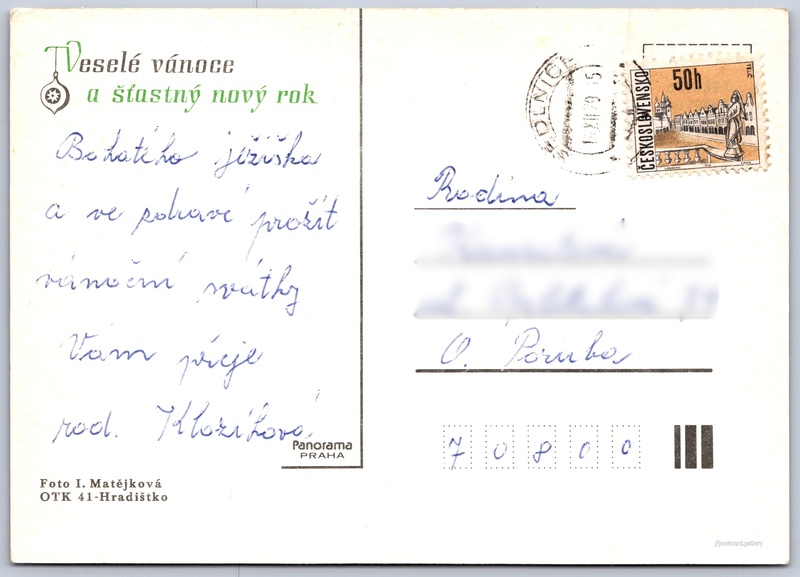 Veselé vánoce
a šťastný nový rok
Bohatého ježíška
a ve zdraví prožít
vánoční svátky
Vám přeje
rod. Klozíková
Panorama
PRAHA
Foto I. Matějková
OTK 41-Hradištko
50h
ČESKOSLOVENSKO
TELČ
Rodina
O. Poruba
70800